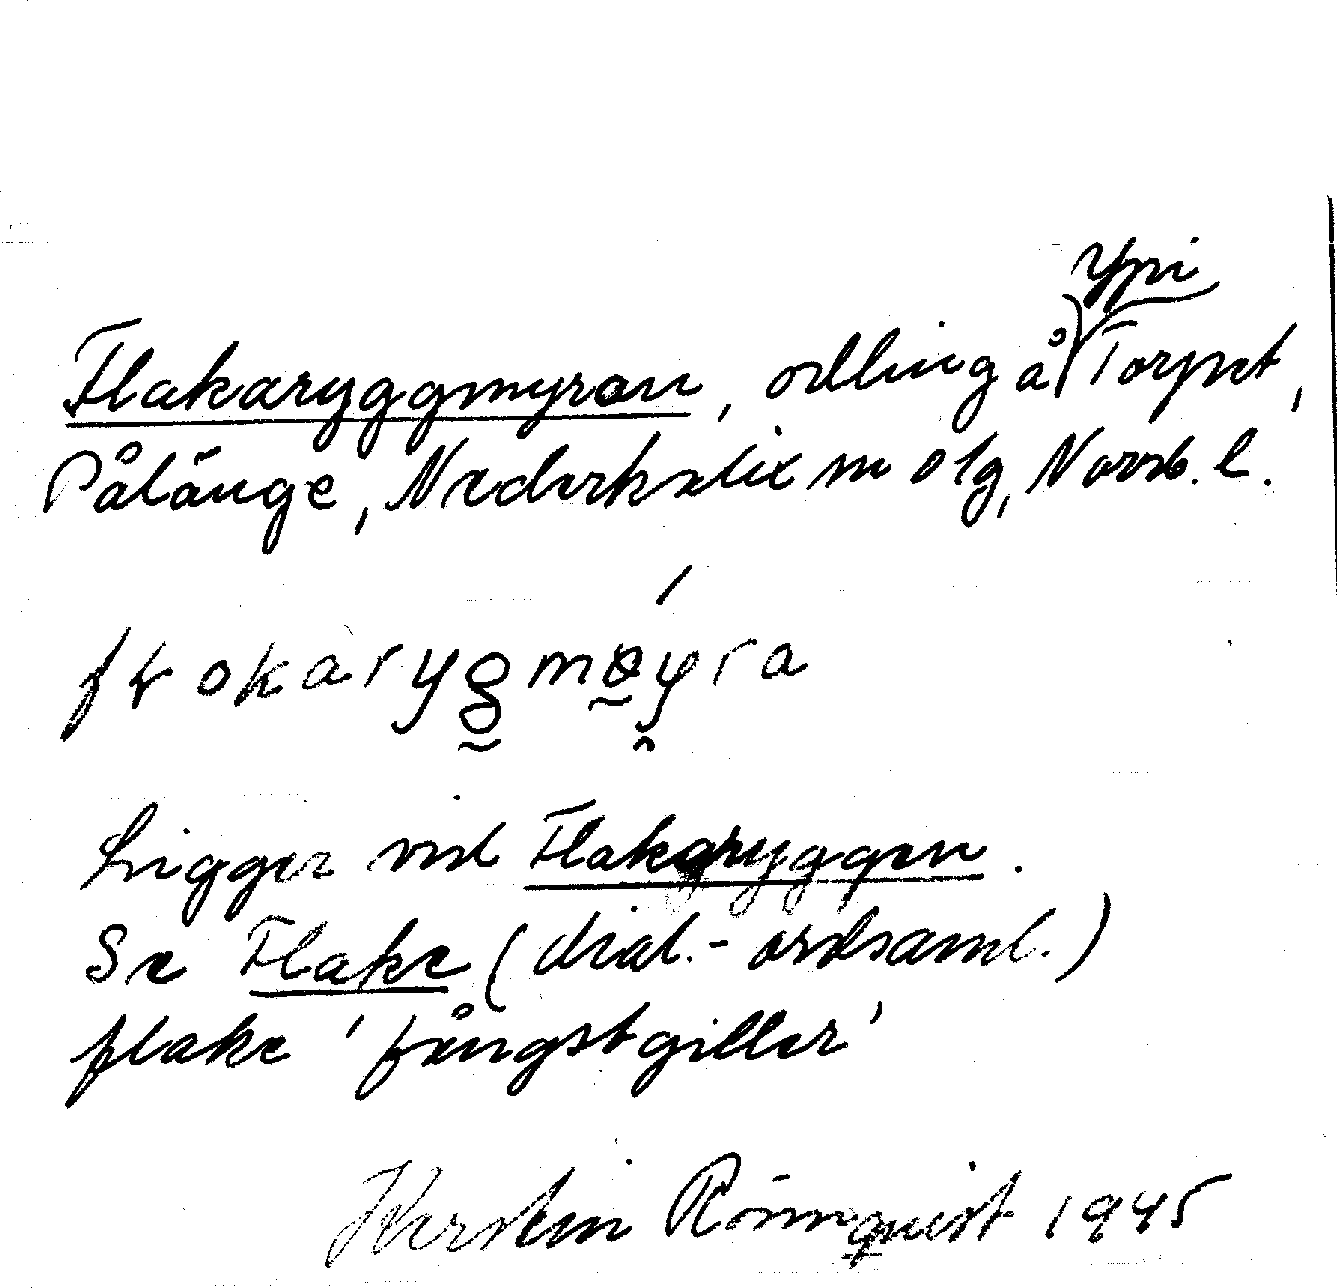 Ypi
Flakaryggmyran, odling å Torpet,
Pålänge, Nederkalix sn olg, Norrb. l.
Ligger vid Flakaryggen.
Se Flake (dial.-ordsaml.)
flake 'fångstgiller'
Kerstin Rönnquist 1945